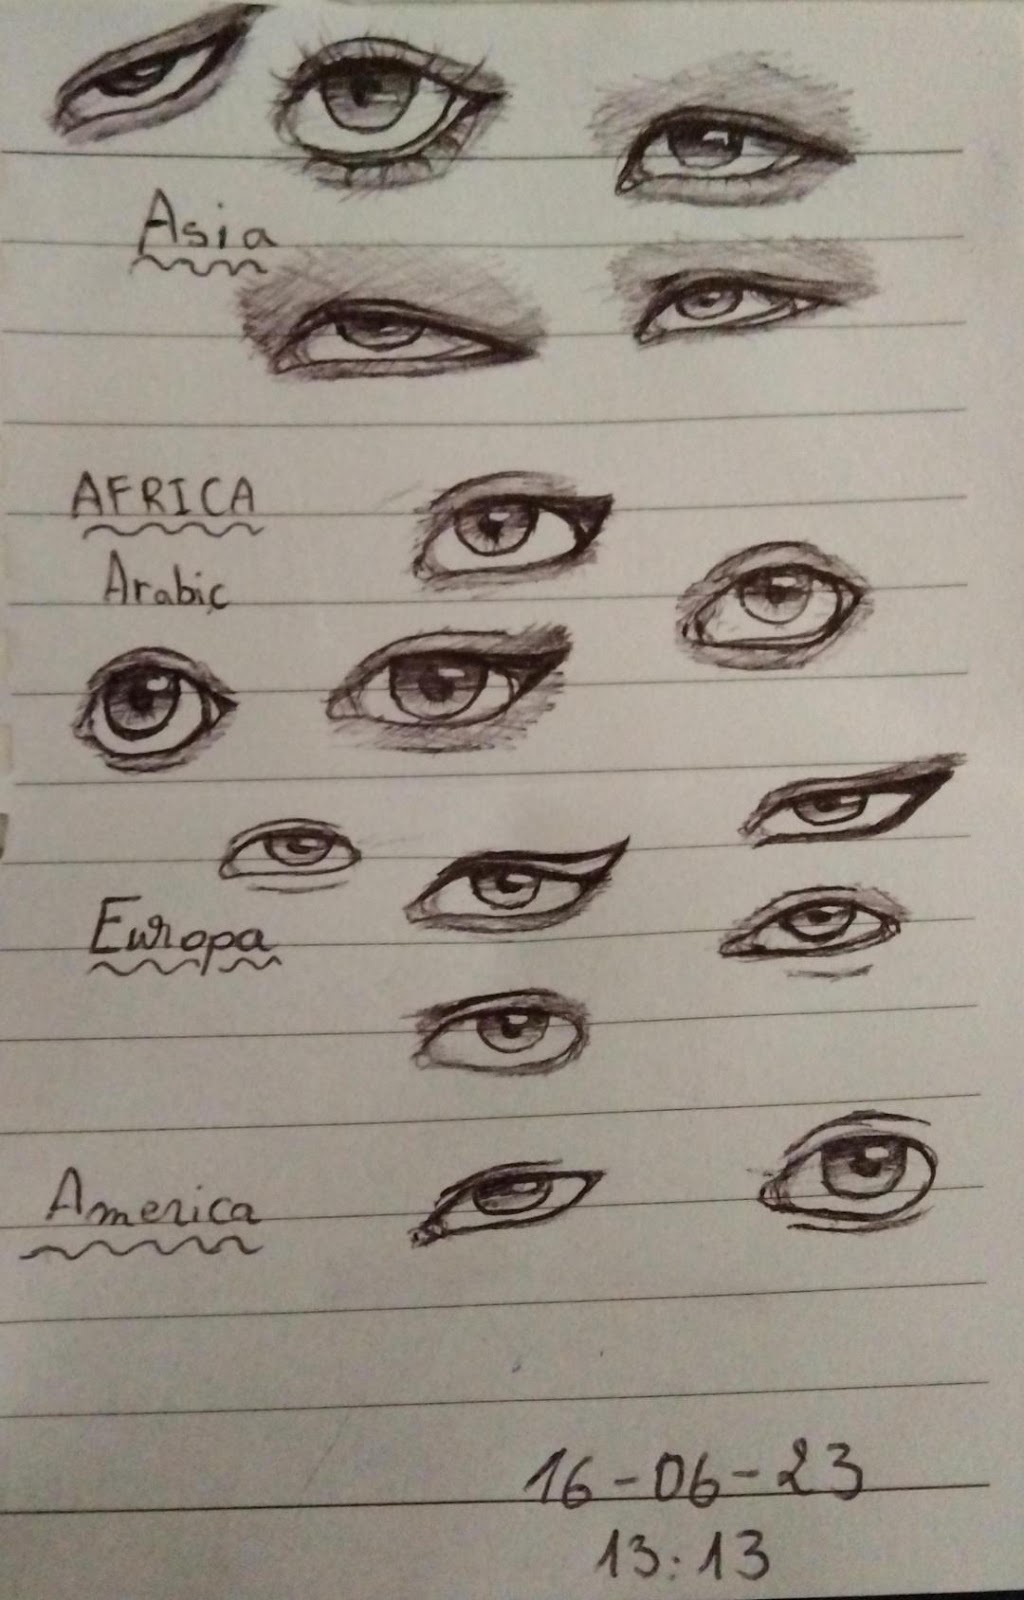 Asia
AFRICA
Arabic
Europa
America
16-06-23
13:13